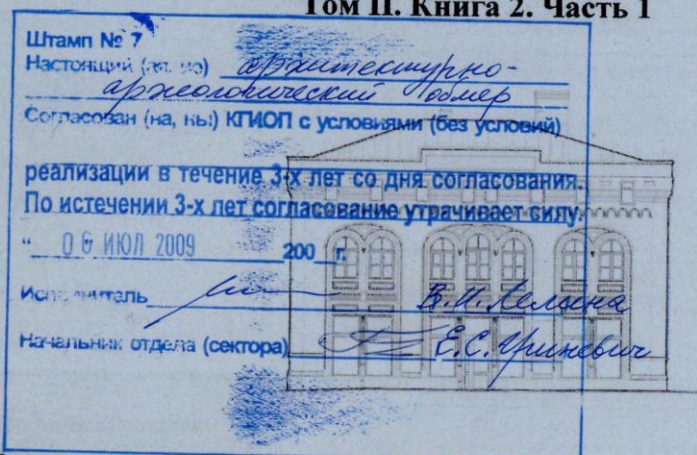 Том II. Книга 2. Часть 1
Штамп № 7
Настоящий (ая, ое) архитектурно-
археологический обмер
Согласован (на, ны) КГИОП с условиями (без условий)
реализации в течение 3-х лет со дня согласования.
По истечении 3-х лет согласование утрачивает силу.
" 06 ИЮЛ 2009 200 г.
Исполнитель
Начальник отдела (сектора) Е.С. Гриневич